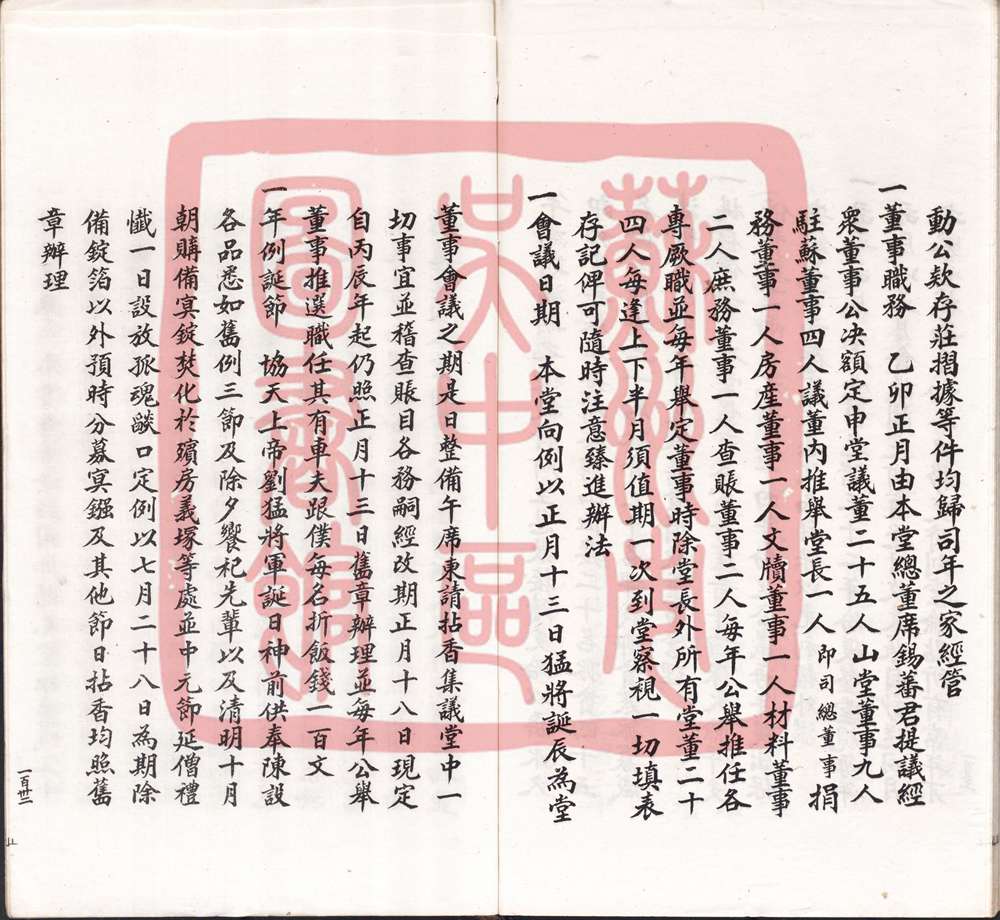 動公欵存莊摺據等件均歸司年之家經管
一董事職務　乙卯正月由本堂總董席錫蕃君提議經
衆董事公决額定申堂議董二十五人山堂董事九人
駐蘇董事四人議董内推舉堂長一人即司總董事捐
務董事一人房産董事一人文牘董事一人材料董事
二人庶務董事一人查賬董事二人每年公舉推任各
專厥職並每年舉定董事時除堂長外所有堂董二十
四人每逢上下半月須值期一次到堂察視一切填表
存記俾可隨時注意臻進辦法
一會議日期　本堂向例以正月十三日猛將誕辰為堂
董事會議之期是日整備午席柬請拈香集議堂中一
切事宜並稽查賬目各務嗣經改期正月十八日現定
自丙辰年起仍照正月十三日舊章辦理並每年公舉
董事推選職任其有車夫跟僕每名折飯錢一百文
一年例誕節　協天上帝劉猛將軍誕日神前供奉陳設
各品悉如舊例三節及除夕饗祀先輩以及清明十月
朝購備冥錠焚化於殯房義塚等處並中元節延僧禮
懺一日設放孤魂燄口定例以七月二十八日為期除
備錠箔以外預時分募冥鏹及其他節日拈香均照舊
章辦理
一百卅三
蘇州市
吴中區
圖書館